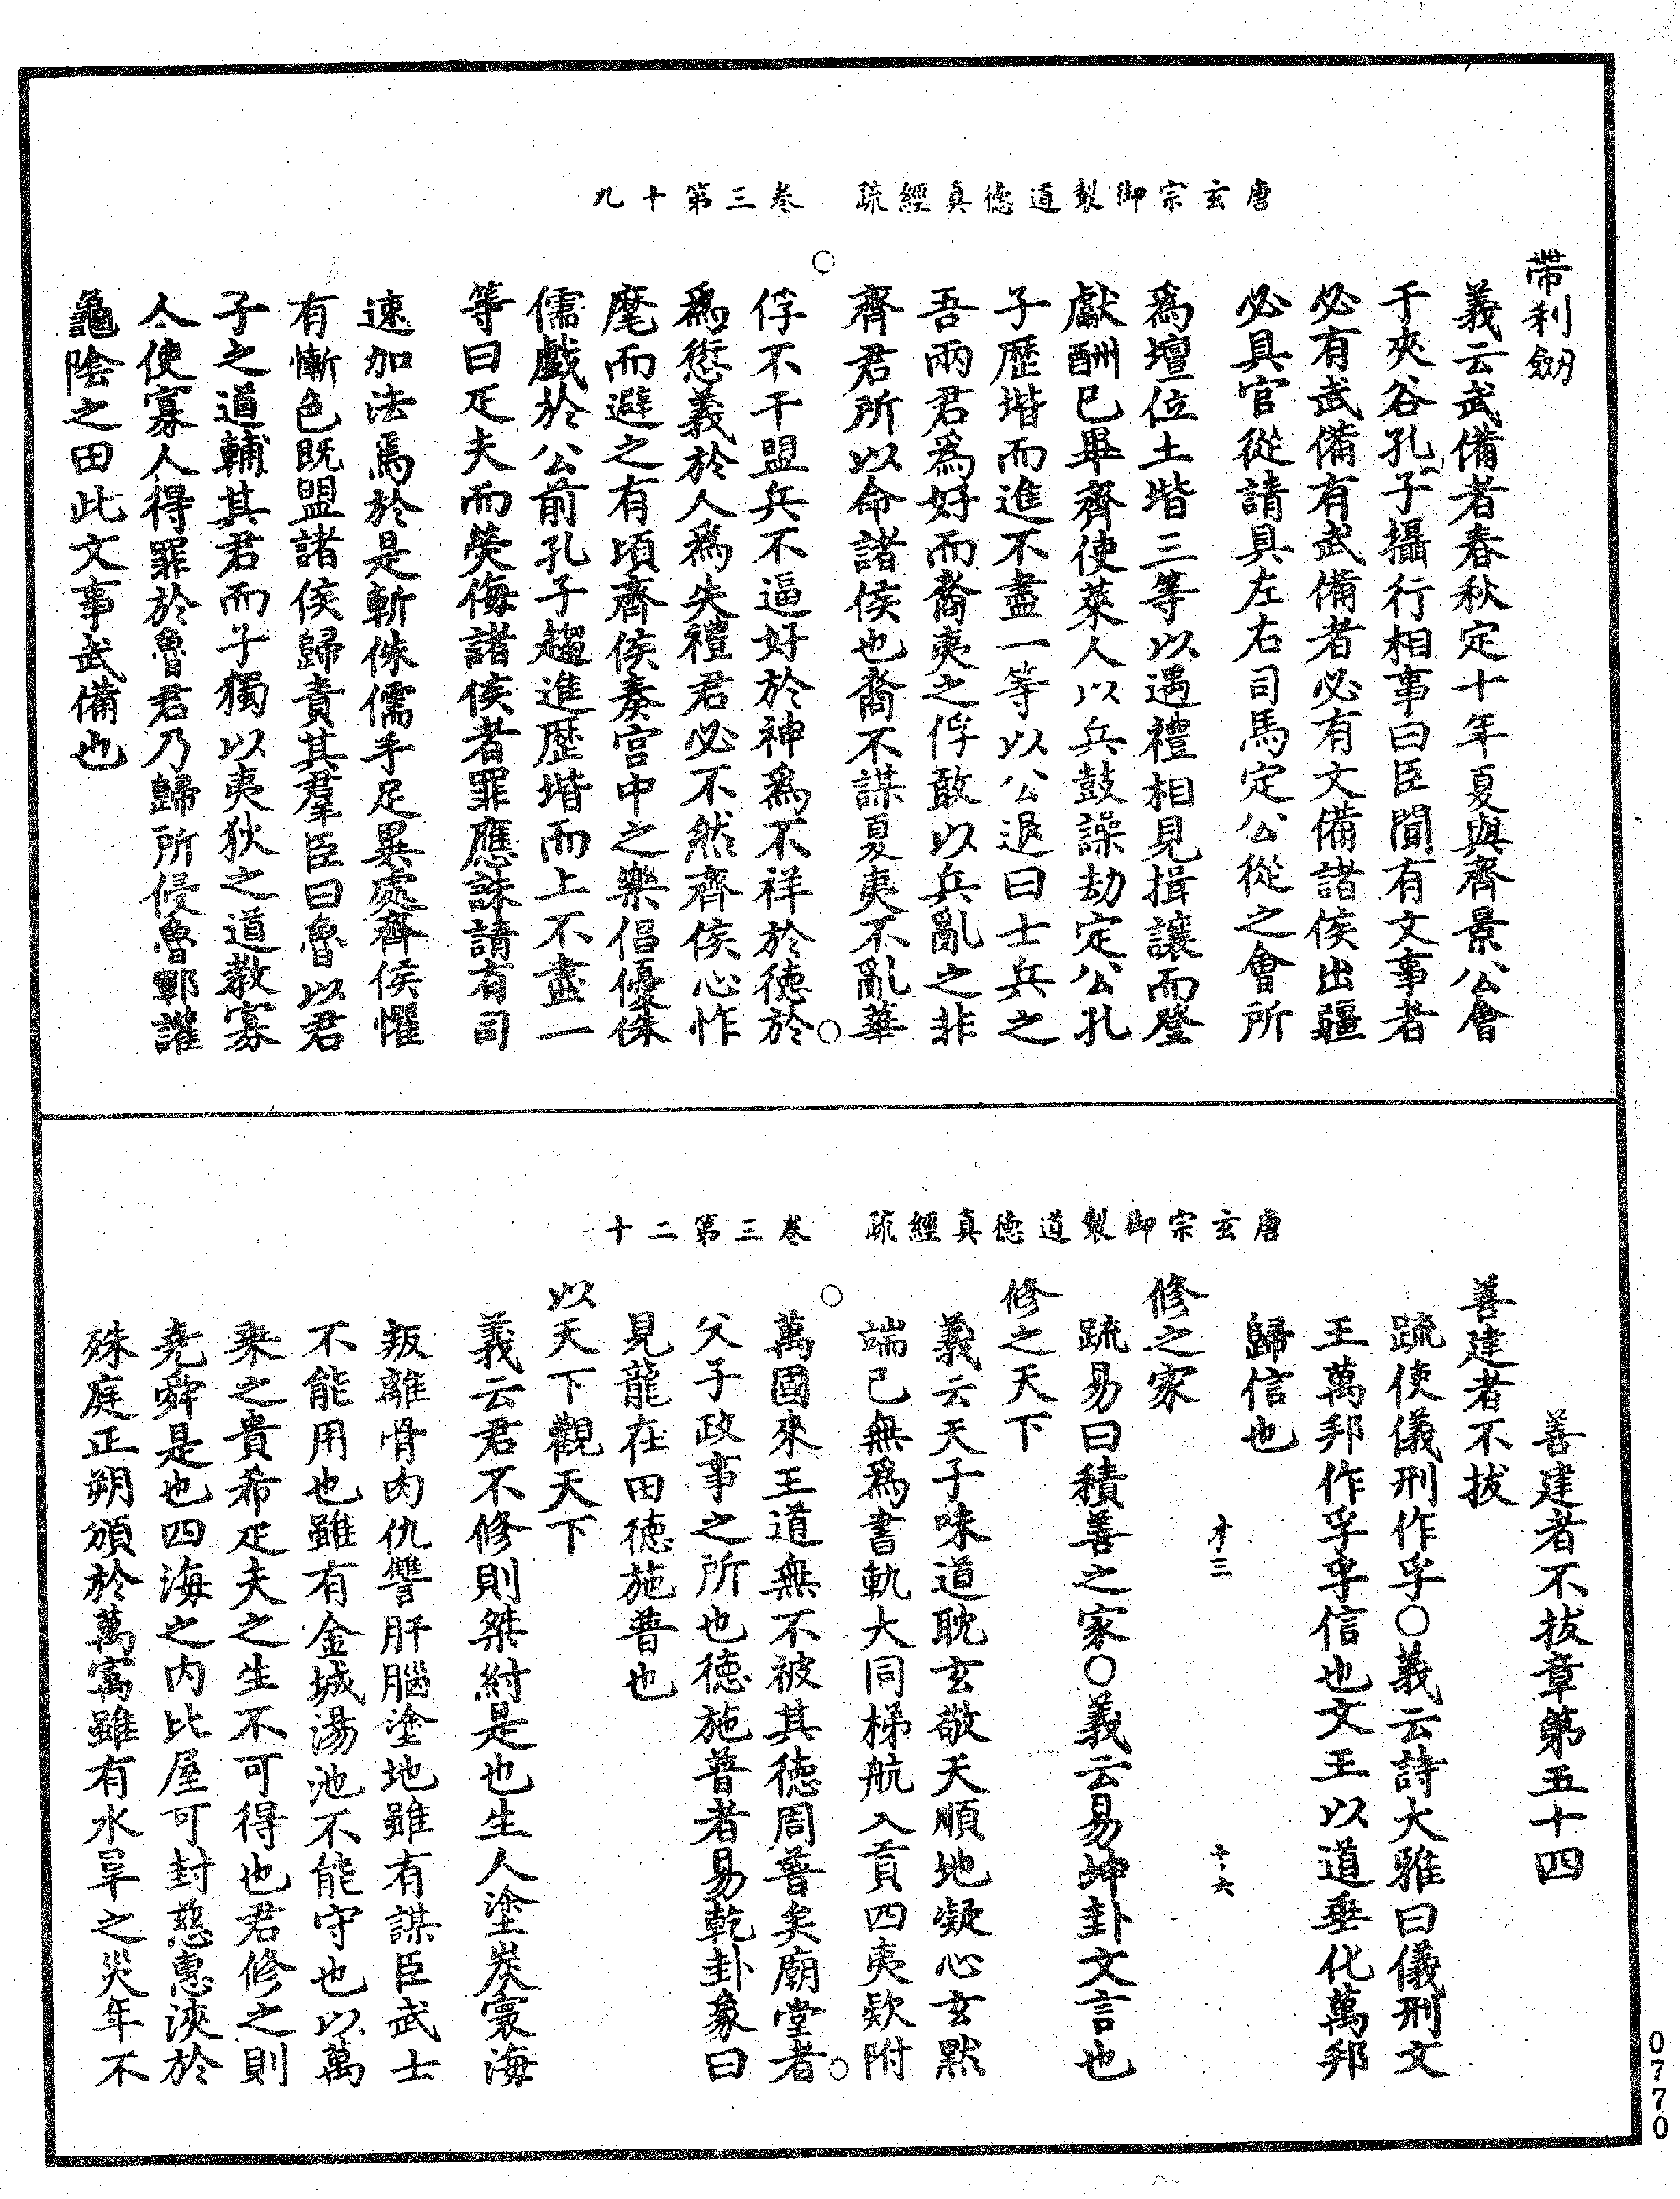 唐玄宗御製道德真經疏　卷三第十九
帶利劒
義云武備者春秋定十年夏與齊景公會
于夾谷孔子攝行相事曰臣聞有文事者
必有武備有武備者必有文備諸侯出疆
必具官從請具左右司馬定公從之會所
爲壇位土堦三等以遇禮相見揖讓而登
獻酬已畢齊使萊人以兵鼓譟劫定公孔
子歷堦而進不盡一等以公退曰士兵之
吾兩君爲好而裔夷之俘敢以兵亂之非
齊君所以命諸侯也裔不謀夏夷不亂華
俘不干盟兵不逼好於神爲不祥於德於
爲愆義於人爲失禮君必不然齊侯心怍
麾而避之有頃齊侯奏宮中之樂倡優侏
儒戲於公前孔子趨進歷堦而上不盡一
等曰疋夫而熒侮諸侯者罪應誅請有司
速加法焉於是斬侏儒手足異處齊侯懼
有慚色既盟諸侯歸責其羣臣曰魯以君
子之道輔其君而子獨以夷狄之道教寡
人使寡人得罪於魯君乃歸所侵魯鄆讙
龜陰之田此文事武備也
唐玄宗御製道德真經疏　卷三第二十
善建者不拔章第五十四
善建者不拔
疏使儀刑作孚○義云詩大雅曰儀刑文
王萬邦作孚孚信也文王以道垂化萬邦
歸信也
才三　十六
修之家
疏易曰積善之家○義云易坤卦文言也
修之天下
義云天子味道耽玄敬天順地凝心玄默
端己無爲書軌大同梯航入貢四夷欵附
萬國來王道無不被其德周普矣廟堂者
父子政事之所也德施普者易乾卦象曰
見龍在田德施普也
以天下觀天下
義云君不修則桀紂是也生人塗炭寰海
叛離骨肉仇讐肝腦塗地雖有謀臣武士
不能用也雖有金城湯池不能守也以萬
乘之貴希疋夫之生不可得也君修之則
堯舜是也四海之内比屋可封慈惠浹於
殊庭正朔頒於萬寓雖有水旱之災年不
0770